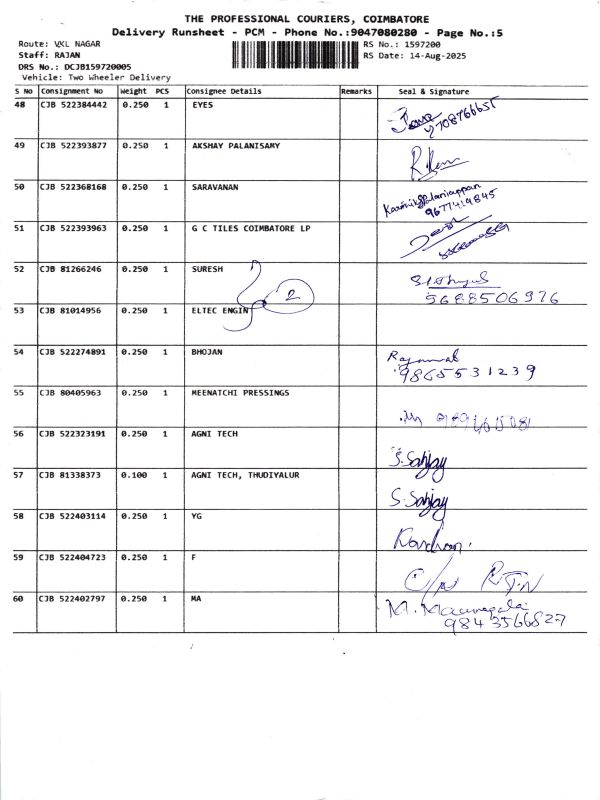 THE PROFESSIONAL COURIERS, COIMBATORE
Delivery Runsheet - PCM - Phone No.:9047080280 - Page No.:5
Route: VKL NAGAR
RS No.: 1597200
Staff: RAJAN
RS Date: 14-Aug-2025
DRS No.: DCJB159720005
Vehicle: Two Wheeler Delivery
S No Consignment No Weight PCS Consignee Details Remarks Seal & Signature
48 CJB 522384442 0.250 1 EYES
9708766651
49 CJB 522393877 0.250 1 AKSHAY PALANISAMY
50 CJB 522368168 0.250 1 SARAVANAN
9677419845
51 CJB 522393963 0.250 1 G C TILES COIMBATORE LP
52 CJB 81266246 0.250 1 SURESH
9688506976
2
53 CJB 81014956 0.250 1 ELTEC ENGIN
54 CJB 522274891 0.250 1 BHOJAN
9865531239
55 CJB 80405963 0.250 1 MEENATCHI PRESSINGS
56 CJB 522323191 0.250 1 AGNI TECH
S. Sanjay
57 CJB 81338373 0.100 1 AGNI TECH, THUDIYALUR
S. Sanjay
58 CJB 522403114 0.250 1 YG
59 CJB 522404723 0.250 1 F
60 CJB 522402797 0.250 1 MA
9843566827